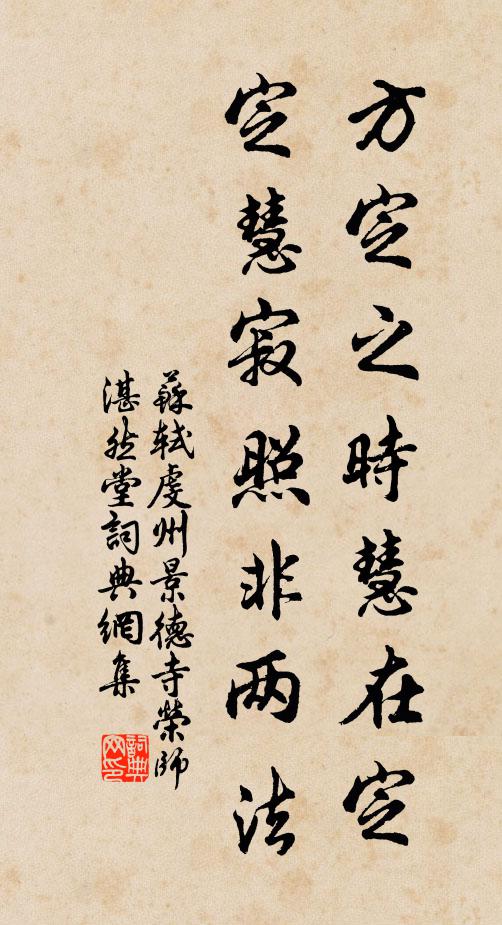 方定之時慧在定
定慧寂照非两法
蘇軾虔州景德寺榮師
湛然堂詞典網集
詞典网印